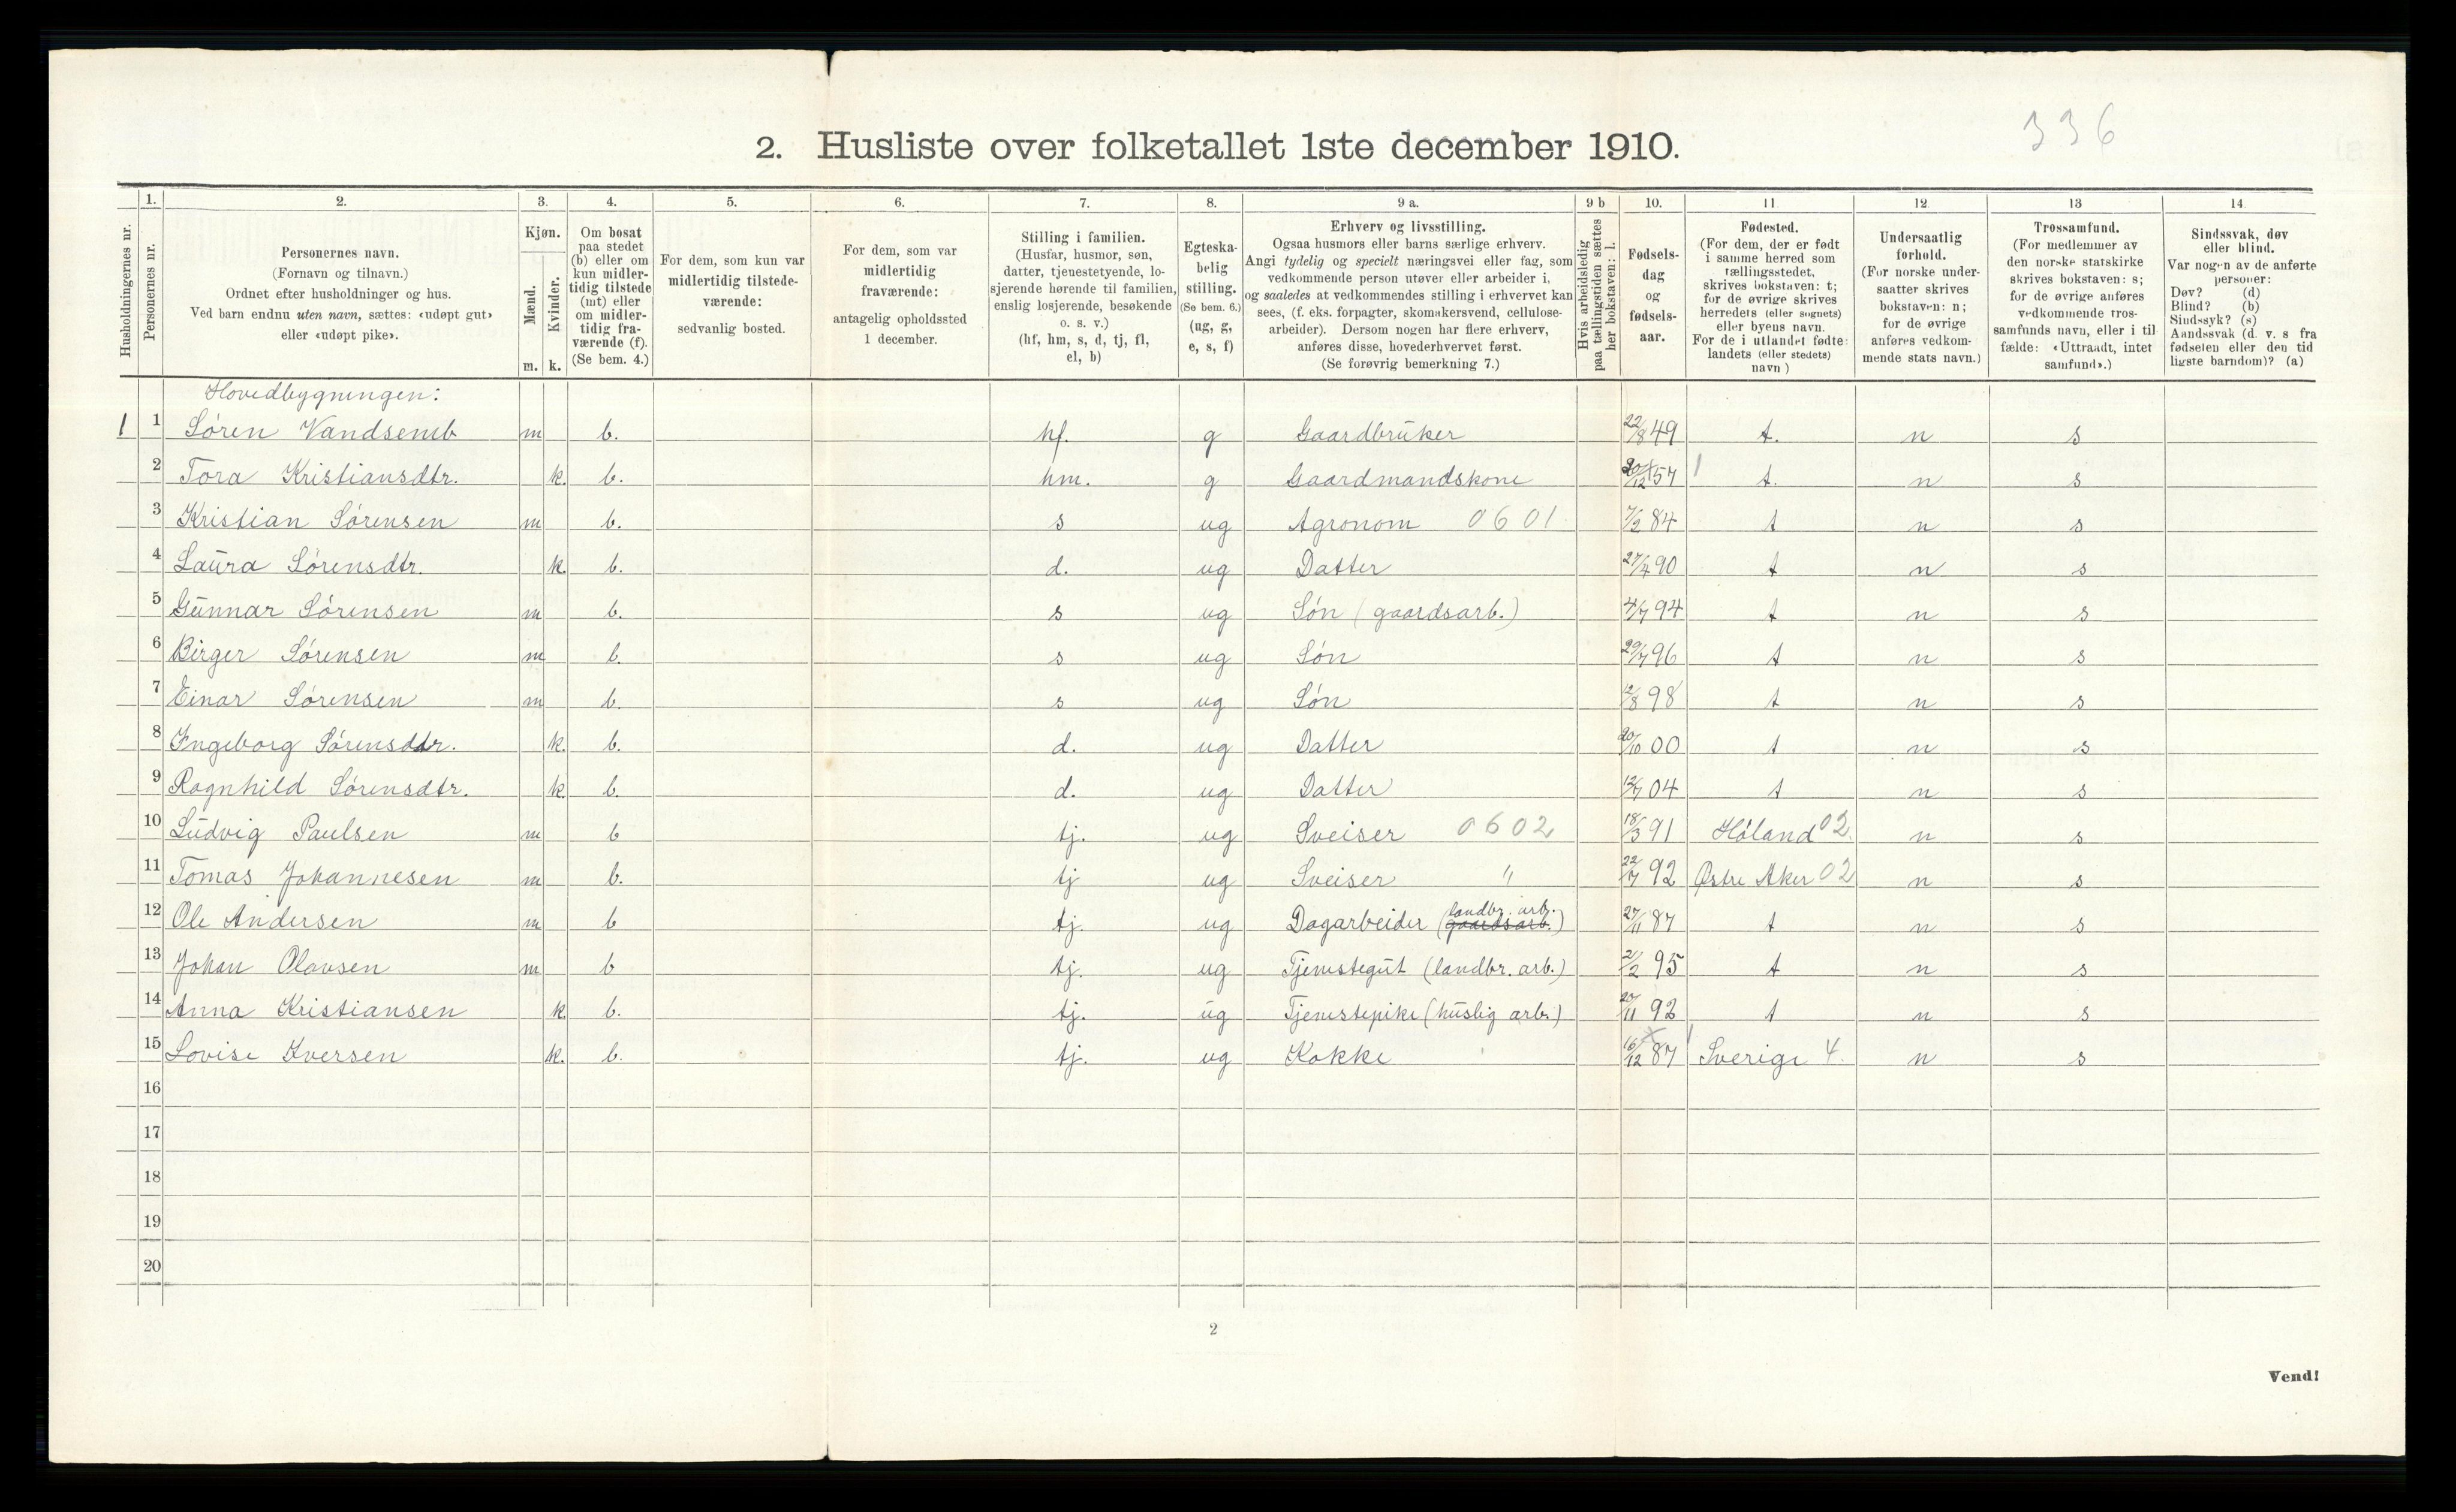 336
2. Husliste over folketallet 1ste december 1910.
Husholdningernes nr.
1.
Personernes nr.
2.
Personernes navn.
(Fornavn og tilnavn.)
Ordnet efter husholdninger og hus.
Ved barn endnu uten navn, sættes: «udøpt gut»
eller «udøpt pike».
3.
Kjøn.
Mænd.
Kvinder.
m. k.
4.
Om bosat
paa stedet
(b) eller om
kun midler-
tidig tilstede
(mt) eller
om midler-
tidig fra-
værende (f).
(Se bem. 4.)
5.
For dem, som kun var
midlertidig tilstede-
værende:
sedvanlig bosted.
6.
For dem, som var
midlertidig
fraværende:
antagelig opholdssted
1 december.
7.
Stilling i familien.
(Husfar, husmor, søn,
datter, tjenestetyende, lo-
sjerende hørende til familien,
enslig losjerende, besøkende
o. s. v.)
(hf, hm, s, d, tj, fl,
el, b)
8.
Egteska-
belig
stilling.
(Se bem. 6.)
(ug, g,
e, s, f)
9 a.
Erhverv og livsstilling.
Ogsaa husmors eller barns særlige erhverv.
Angi tydelig og specielt næringsvei eller fag, som
vedkommende person utøver eller arbeider i,
og saaledes at vedkommendes stilling i erhvervet kan
sees, (f. eks. forpagter, skomakersvend, cellulose-
arbeider). Dersom nogen har flere erhverv,
anføres disse, hovederhvervet først.
(Se forøvrig bemerkning 7.)
9 b
Hvis arbeidsledig
paa tællingstiden sættes
her bokstaven: l.
10.
Fødsels-
dag
og
fødsels-
aar.
11
Fødested.
(For dem, der er født
i samme herred som
tællingsstedet,
skrives bokstaven: t;
for de øvrige skrives
herredets (eller sognets)
eller byens navn.
For de i utlandet fødte:
landets (eller stedets)
navn )
12.
Undersaatlig
forhold.
(For norske under-
saatter skrives
bokstaven: n;
for de øvrige
anføres vedkom-
mende stats navn.)
13
Trossamfund.
(For medlemmer av
den norske statskirke
skrives bokstaven: s;
for de øvrige anføres
vedkommende tros-
samfunds navn, eller i til
fælde: «Uttraadt, intet
samfund».)
14.
Sindssvak, døv
eller blind.
Var nogen av de anførte
personer:
Døv? (d)
Blind? (b)
Sindssyk? (s)
Aandssvak (d. v. s fra
fødselen eller den tid
ligste barndom)? (a)
Hovedbygningen:
1 1 Søren Vandsemb m b. hf. g Gaardbruker 22/8 49 t. n s
2 Tora Kristiansdtr. k. b. hm. g Gaardmandskone 20/12 57 t. n s
3 Kristian Sørensen m b. s ug Agronom 0601 7/2 84 t n s
4 Laura Sørensdtr. k. b. d. ug Datter 27/4 90 t n s
5 Gunnar Sørensen m b. s ug Søn (gaardsarb.) 4/7 94 t n s
6 Birger Sørensen m b. s ug Søn 29/7 96 t n s
7 Einar Sørensen m b. s ug Søn 12/8 98 t n s
8 Ingeborg Sørensdtr. k. b. d. ug Datter 20/10 00 t n s
9 Ragnhild Sørensdtr. k. b. d. ug Datter 12/7 04 t n s
10 Ludvig Paulsen m b tj. ug Sveiser 0602 18/3 91 Høland 02. n s
11 Tomas Johannesen m b. tj ug Sveiser " 22/7 92 Østre Aker 02 n s
12 Ole Andersen m b tj. ug Dagarbeider (gaardsarb. landbr. arb.) 27/11 87 t n s
13 Johan Olavsen m b tj. ug Tjenestegut (landbr. arb.) 21/2 95 t n s
14 Anna Kristiansen k. b. tj. ug Tjenestepike (huslig arb.) 27/11 92 t n s
15 Lovise Iversen k. b. tj. ug Kokke 16/12 87 Sverige 4. n s
16
17
18
19
20
2
Vend!